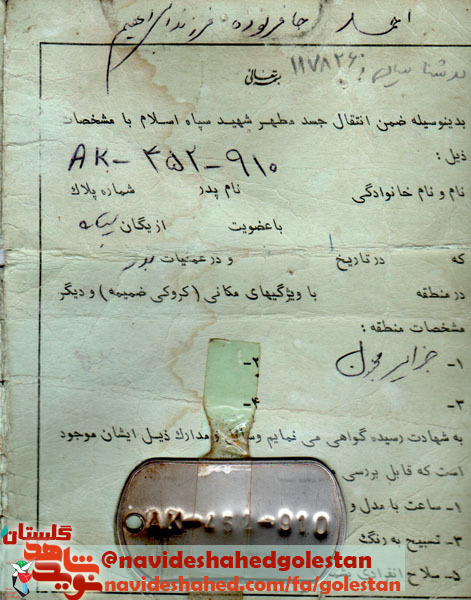 احمد جافرنوده فرزند ابراهیم
۱۱۷۸۲۶
بسمه تعالی
بدینوسیله ضمن انتقال جسد مطهر شهید سپاه اسلام با مشخصات
ذیل :
AK-۴۵۲-۹۱۰
نام و نام خانوادگی نام پدر شماره پلاك
با عضویت از یگان سپاه
که در تاریخ و در عملیات بدر
در منطقه با ویژگیهای مکانی (کروکی ضمیمه) و دیگر
مشخصات منطقه :
۱- جزایر مجنون ۲-
۳- ۴-
به شهادت رسیده گواهی می نمایم وسائل و مدارك ذیل ایشان موجود
است که قابل بررسی
۱- ساعت با مدل و
۳- تسبیح به رنگ
۵- سلاح انفرادی
AK-452-910
نوید شاهد گلستان
@navideshahedgolestan
navideshahed.com/fa/golestan